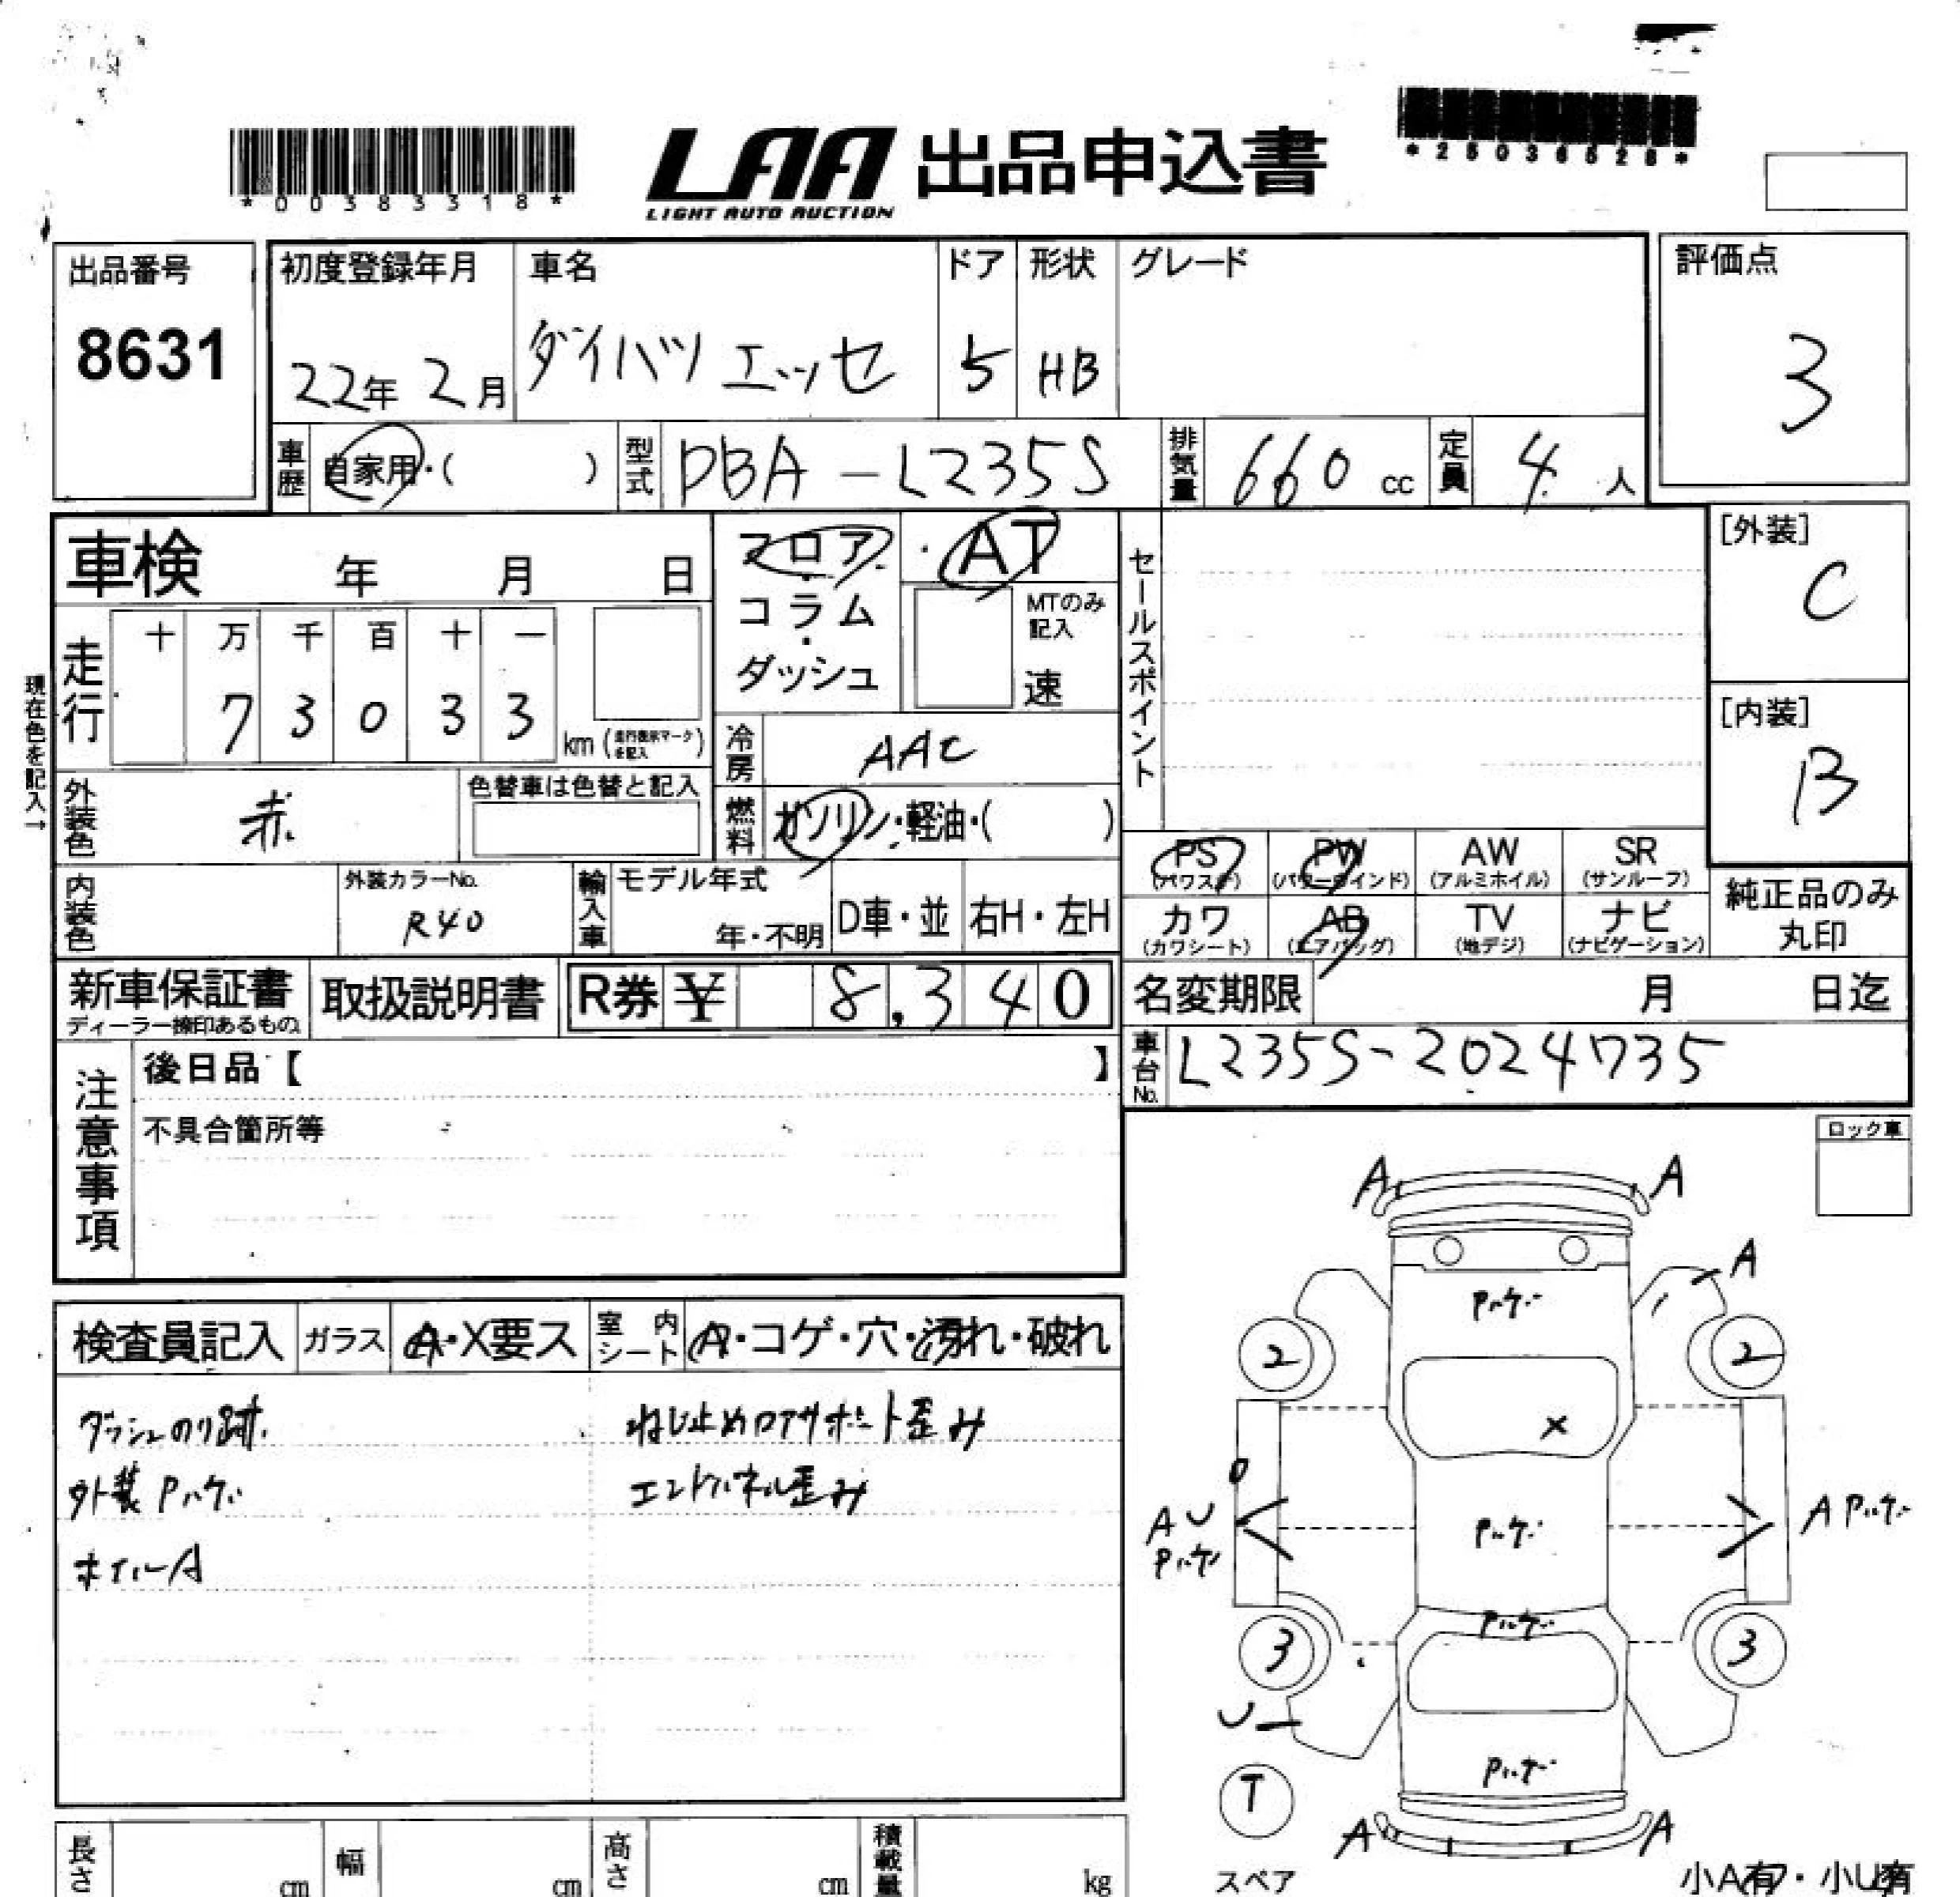 *00383318*
LAA 出品申込書
LIGHT AUTO AUCTION
*25036528*
出品番号
8631
初度登録年月
22年 2月
車名
ダイハツ エッセ
ドア
5
形状
HB
グレード
評価点
3
車歴 自家用・( )
型式 DBA-L235S
排気量 660 cc
定員 4 人
[外装]
C
[内装]
B
車検 年 月 日
フロア・コラム・ダッシュ
・AT
MTのみ記入
速
セールスポイント
現在色を記入→
走行
十 万 千 百 十 一
7 3 0 3 3
km (走行表示マークを記入)
冷房 AAC
燃料 ガソリン・軽油・( )
外装色 赤
色替車は色替と記入
内装色
外装カラーNo.
R40
輸入車
モデル年式
年・不明
D車・並
右H・左H
PS (パワステ)
PW (パワーウインド)
AW (アルミホイル)
SR (サンルーフ)
カワ (カワシート)
AB (エアバッグ)
TV (地デジ)
ナビ (ナビゲーション)
純正品のみ
丸印
新車保証書
ディーラー捺印あるもの
取扱説明書
R券 ¥ 8,340
名変期限 月 日迄
車台No. L235S-2024735
注意事項
後日品【 】
不具合箇所等
ロック車
検査員記入
ガラス A・X要ス
室内シート A・コゲ・穴・汚れ・破れ
ダッシュのり跡
外装Pハゲ
ホイルA
ねじ止めロアサポート歪み
エンドパネル歪み
A A
A
Pハゲ
2 2
X
U
A U
Pハゲ
Pハゲ
A Pハゲ
Pハゲ
3 3
U
Pハゲ
T
スペア
A A
小A有・小U有
長さ cm
幅 cm
高さ cm
積載量 kg